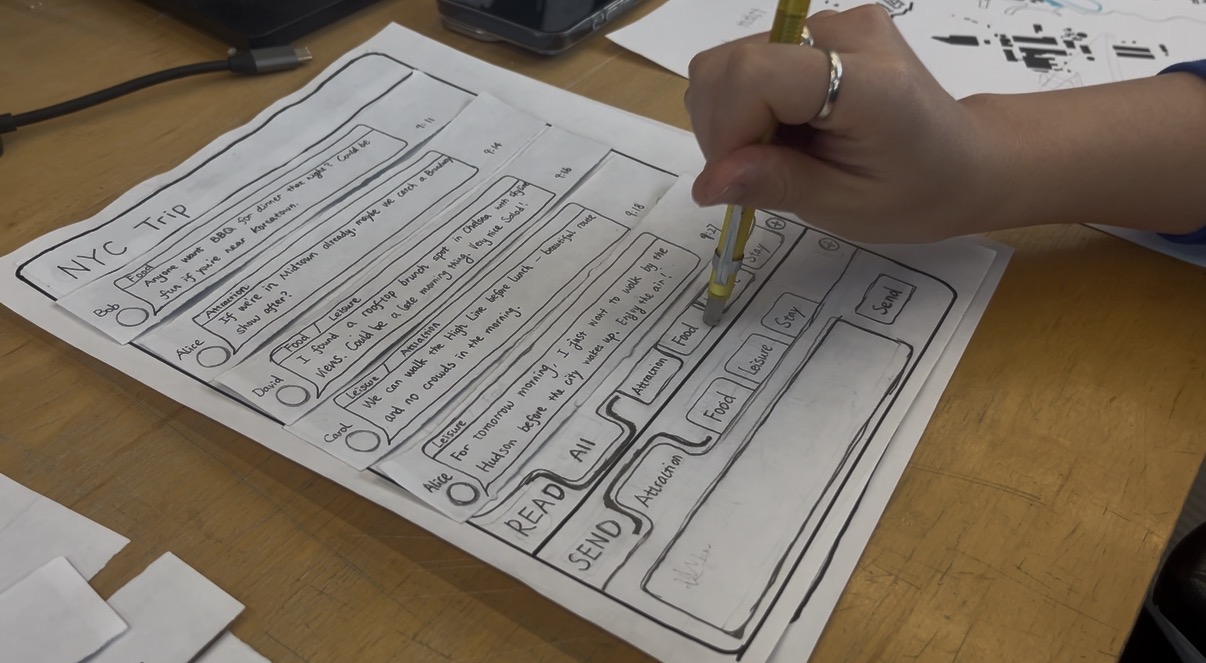 NYC Trip
9:11
Food
Anyone want BBQ for dinner that night? Could be
fun if you're near Koreatown.
Bob
9:14
Attraction
If we're in Midtown already, maybe we catch a Broadway
show after?
Alice
9:16
Food / Leisure
I found a rooftop brunch spot in Chelsea with skyline
views. Could be a late morning thing. Very nice salad!
David
9:18
Leisure / Attraction
We can walk the High Line before lunch - beautiful route
and no crowds in the morning.
Carol
9:27
Leisure
For tomorrow morning, I just want to walk by the
Hudson before the city wakes up. Enjoy the air!
Alice
READ All Attraction Food Stay
SEND Attraction Food Leisure Stay
Send